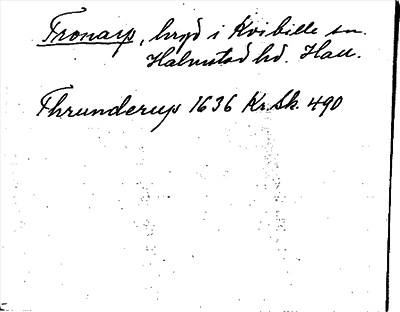 Fronarp, bryd i Kvibille sn.
Halmstad hd. Hall.
Thrunderup 1636 Kr. Sk. 490